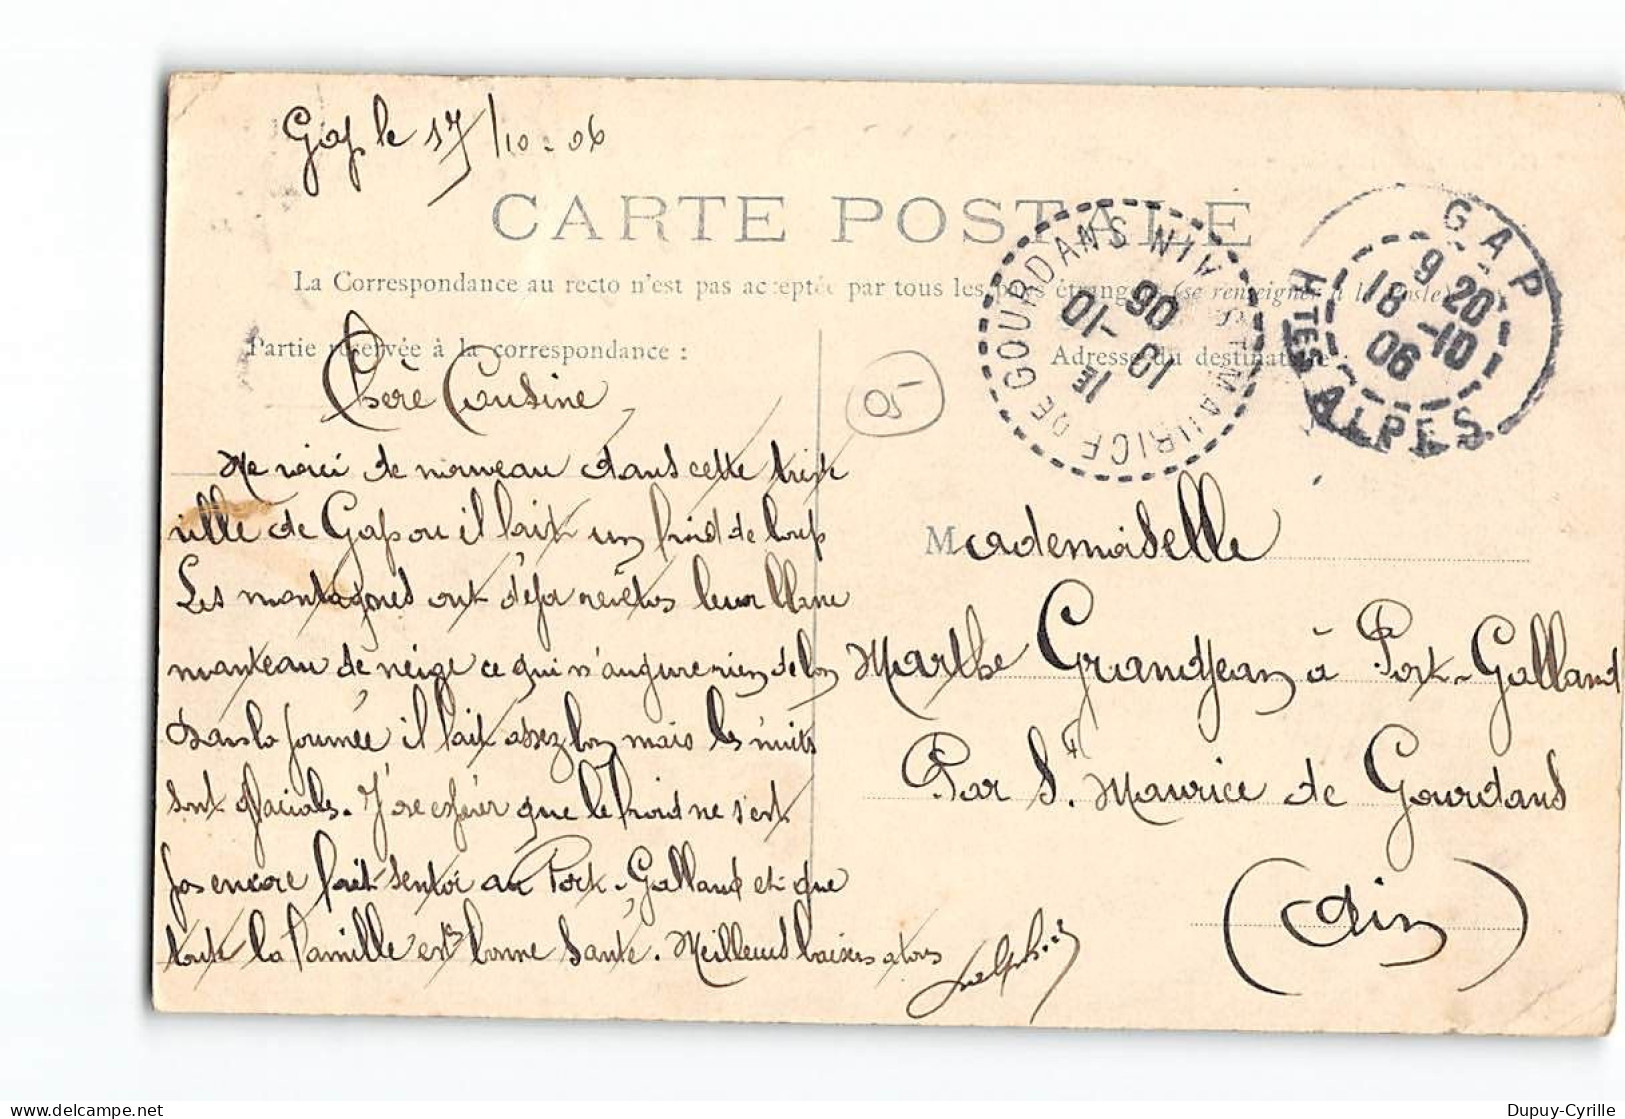 Gap le 17/10-06
CARTE POSTALE
La Correspondance au recto n'est pas acceptée par tous les pays étrangers (se renseigner à la Poste)
Partie réservée à la correspondance :
Adresse du destinataire :
ST MAURICE DE GOURDANS AIN
1E
10 -10
06
GAP
9 20
18 -10
06
HTES ALPES
05-
Chère Cousine
Me voici de nouveau dans cette triste
ville de Gap ou il fait un froid de loup
Les montagnes ont déja revêtus leur blanc
manteau de neige ce qui n'augure rien de bon
Dans la journée il fait assez bon mais les nuits
sont glaciales. J'ose espérer que le froid ne s'est
pas encore fait sentir au Port-Galland et que
toute la famille est bonne Santé. Meilleurs baisers a tous
Mademoiselle
Marthe Grandjean à Port-Galland
Par St Maurice de Gourdans
(Ain)
Dupuy-Cyrille
delcampe.net